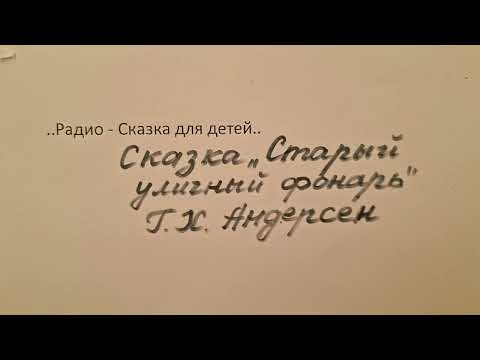 ..Радио - Сказка для детей..
Сказка „Старый
уличный фонарь"
Г. Х. Андерсен